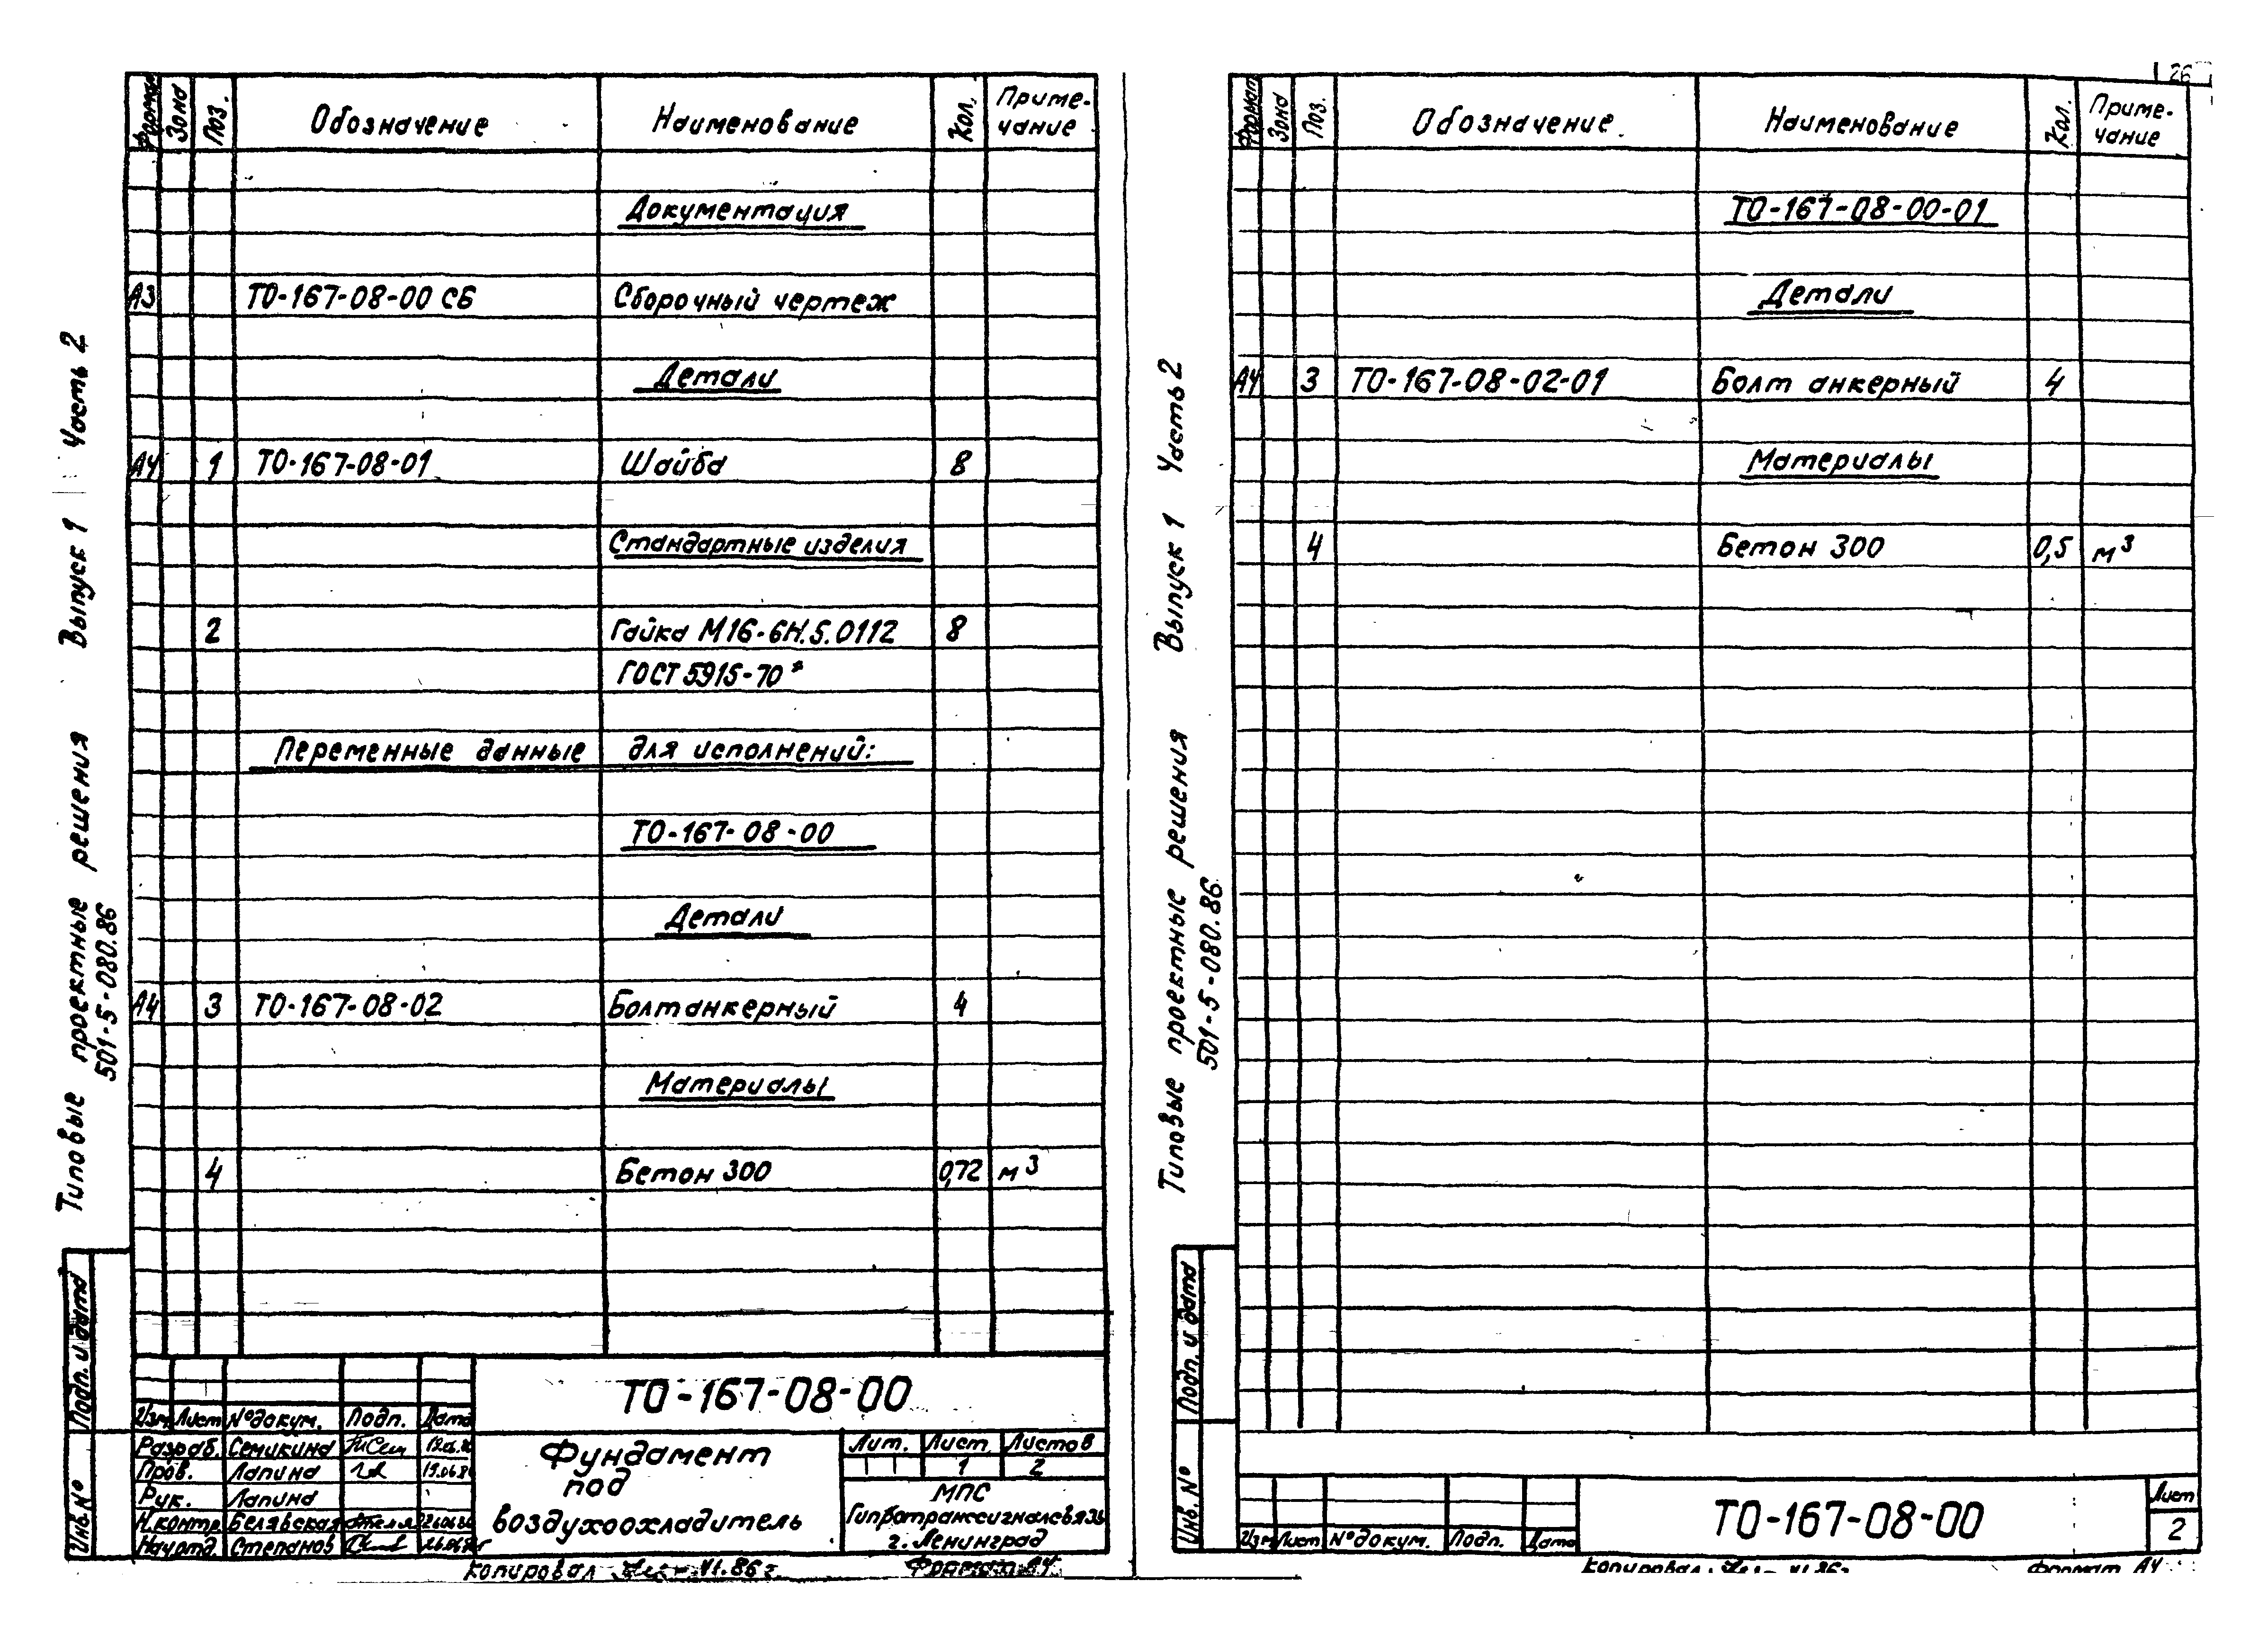 Формат Зона Поз. Обозначение Наименование Кол. Приме-
чание
Документация
А3 ТО-167-08-00 СБ Сборочный чертеж
Детали
А4 1 ТО-167-08-01 Шайба 8
Стандартные изделия
2 Гайка М16-6Н.5.0112 8
ГОСТ 5915-70*
Переменные данные для исполнений:
ТО-167-08-00
Детали
А4 3 ТО-167-08-02 Болт анкерный 4
Материалы
4 Бетон 300 0,72 м³
Типовые проектные решения Выпуск 1 Часть 2
501-5-080.86
Подп. и дата
Инв. №
ТО-167-08-00
Изм Лист № докум. Подп. Дата
Разраб. Семикина
Пров. Лапина
Рук. Лапина
Н.контр. Белявская
Нач.отд. Степанов
Фундамент
под
воздухоохладитель
Лит. Лист Листов
1 2
МПС
Гипротранссигналсвязь
г. Ленинград
Копировал VI.86г. Формат А4
26
Формат Зона Поз. Обозначение Наименование Кол. Приме-
чание
ТО-167-08-00-01
Детали
А4 3 ТО-167-08-02-01 Болт анкерный 4
Материалы
4 Бетон 300 0,5 м³
Типовые проектные решения Выпуск 1 Часть 2
501-5-080.86
Подп. и дата
Инв. №
Изм Лист № докум. Подп. Дата
ТО-167-08-00
Лист
2
Копировал VI.86г. Формат А4